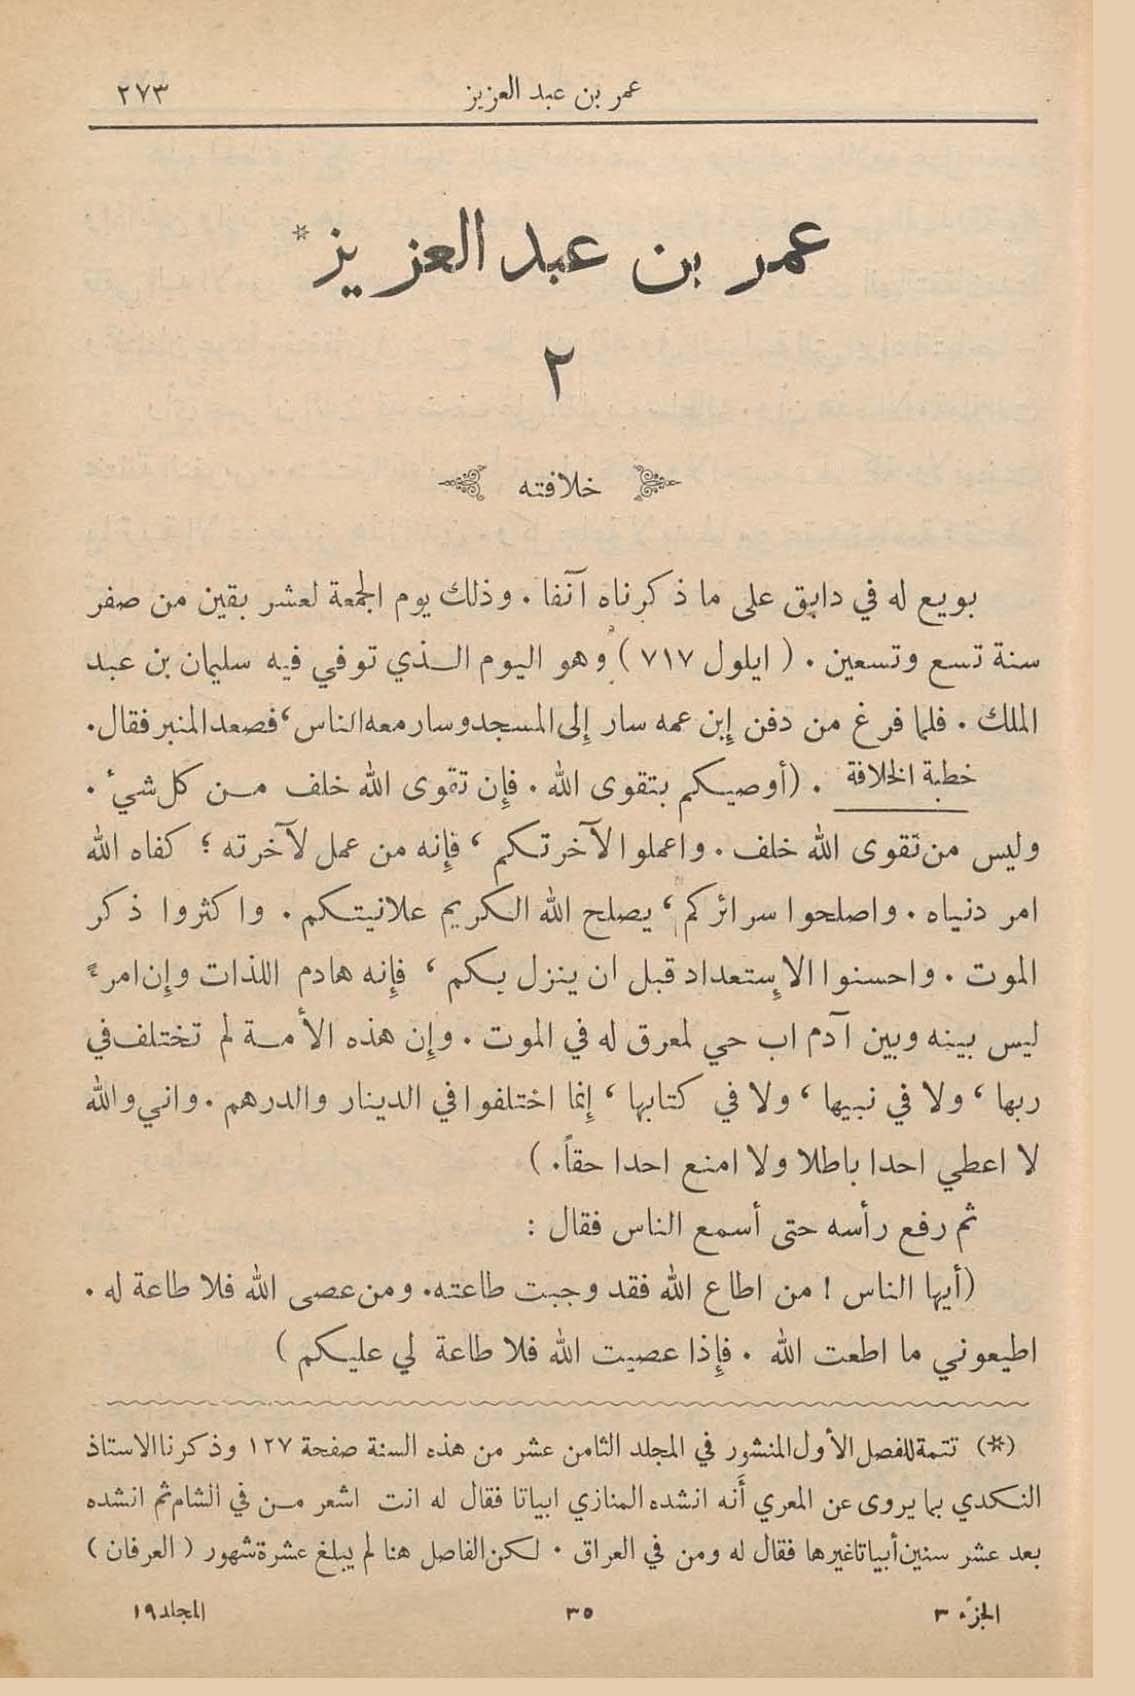 عمر بن عبد العزيز ٢٧٣
عمر بن عبد العزيز*
٢
خلافته
بويع له في دابق على ما ذكرناه آنفا . وذلك يوم الجمعة لعشر بقين من صفر
سنة تسع وتسعين . ( ايلول ٧١٧ ) وهو اليوم الذي توفي فيه سليمان بن عبد
الملك . فلما فرغ من دفن إبن عمه سار إلى المسجد وسار معه الناس ، فصعد المنبر فقال .
خطبة الخلافة . (أوصيكم بتقوى الله . فإن تقوى الله خلف من كل شيء .
وليس من تقوى الله خلف . واعملوا لآخرتكم ، فإنه من عمل لآخرته ؛ كفاه الله
امر دنياه . واصلحوا سرائركم ، يصلح الله الكريم علانيتكم . واكثروا ذكر
الموت . واحسنوا الإستعداد قبل ان ينزل بكم ، فإنه هادم اللذات وإن امرءً
ليس بينه وبين آدم اب حي لمعرق له في الموت . وإن هذه الأمة لم تختلف في
ربها ، ولا في نبيها ، ولا في كتابها ، إنما اختلفوا في الدينار والدرهم . واني والله
لا اعطي احدا باطلا ولا امنع احدا حقاً . )
ثم رفع رأسه حتى أسمع الناس فقال :
(أيها الناس ! من اطاع الله فقد وجبت طاعته . ومن عصى الله فلا طاعة له .
اطيعوني ما اطعت الله . فإذا عصيت الله فلا طاعة لي عليكم )
(*) تتمة للفصل الأول المنشور في المجلد الثامن عشر من هذه السنة صفحة ١٢٧ وذكرنا الاستاذ
النكدي بما يروى عن المعري أنه انشده المنازي ابياتا فقال له انت اشعر من في الشام ثم انشده
بعد عشر سنين أبياتا غيرها فقال له ومن في العراق . لكن الفاصل هنا لم يبلغ عشرة شهور ( العرفان )
الجزء ٣ ٣٥ المجلد ١٩